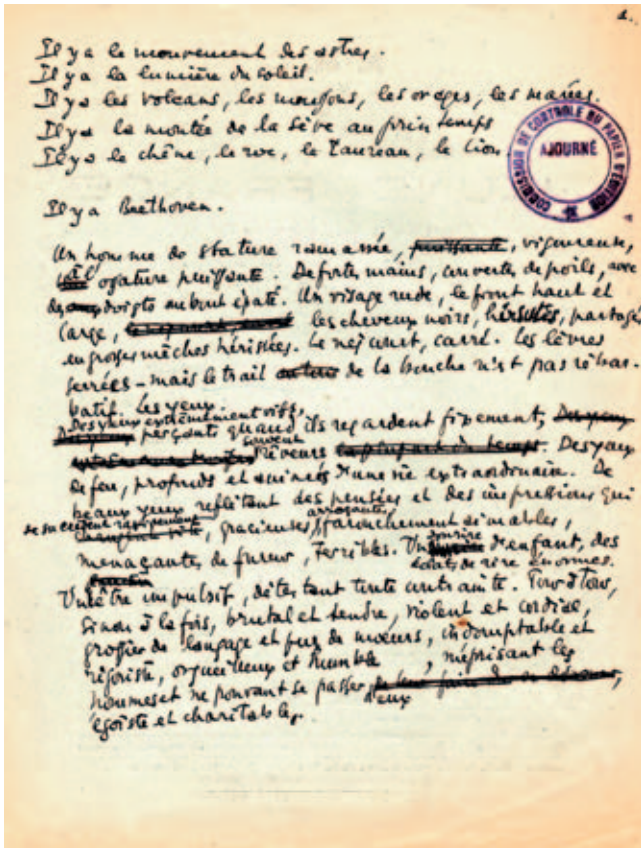 2.
Il y a le mouvement des astres.
Il y a la lumière du soleil.
Il y a les volcans, les moussons, les orages, les marées.
Il y a la montée de la sève au printemps
Il y a le chêne, le roc, le Taureau, le lion.
COMMISSION DE CONTROLE DU PAPIER D'EDITION
AJOURNÉ
Il y a Beethoven.
Un homme de stature ramassée, puissante, vigoureuse,
ossature puissante. De fortes mains, couvertes de poils, avec
des doigts au bout épaté. Un visage rude, le front haut et
large, les cheveux noirs, hirsutes, partagés
en grosses mèches hérissées. Le nez court, carré. Les lèvres
serrées – mais le trait de la bouche n'est pas rébar-
batif. Les yeux.
Des yeux extrêmement vifs,
Des yeux perçants quand ils regardent fixement, Des yeux
souvent
rêveurs la plupart du temps. Des yeux
de feu, profonds et animés d'une vie extraordinaire. De
beaux yeux reflétant des pensées et des impressions qui
se succèdent rapidement arrogantes,
changent vite, gracieuses, farouchement aimables,
menaçantes de fureur, Terribles. Un sourire d'enfant, des
éclats de rire énormes.
Un être impulsif, détestant toute contrainte. Tour à Tour,
sinon à la fois, brutal et tendre, violent et cordial,
grossier de langage et pur de mœurs, indomptable et
rigoriste, orgueilleux et humble, méprisant les
hommes et ne pouvant se passer
d'eux
égoïste et charitable.